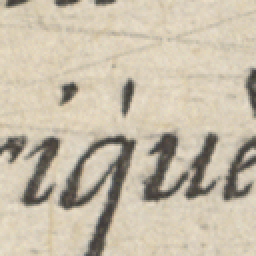 riq́uè